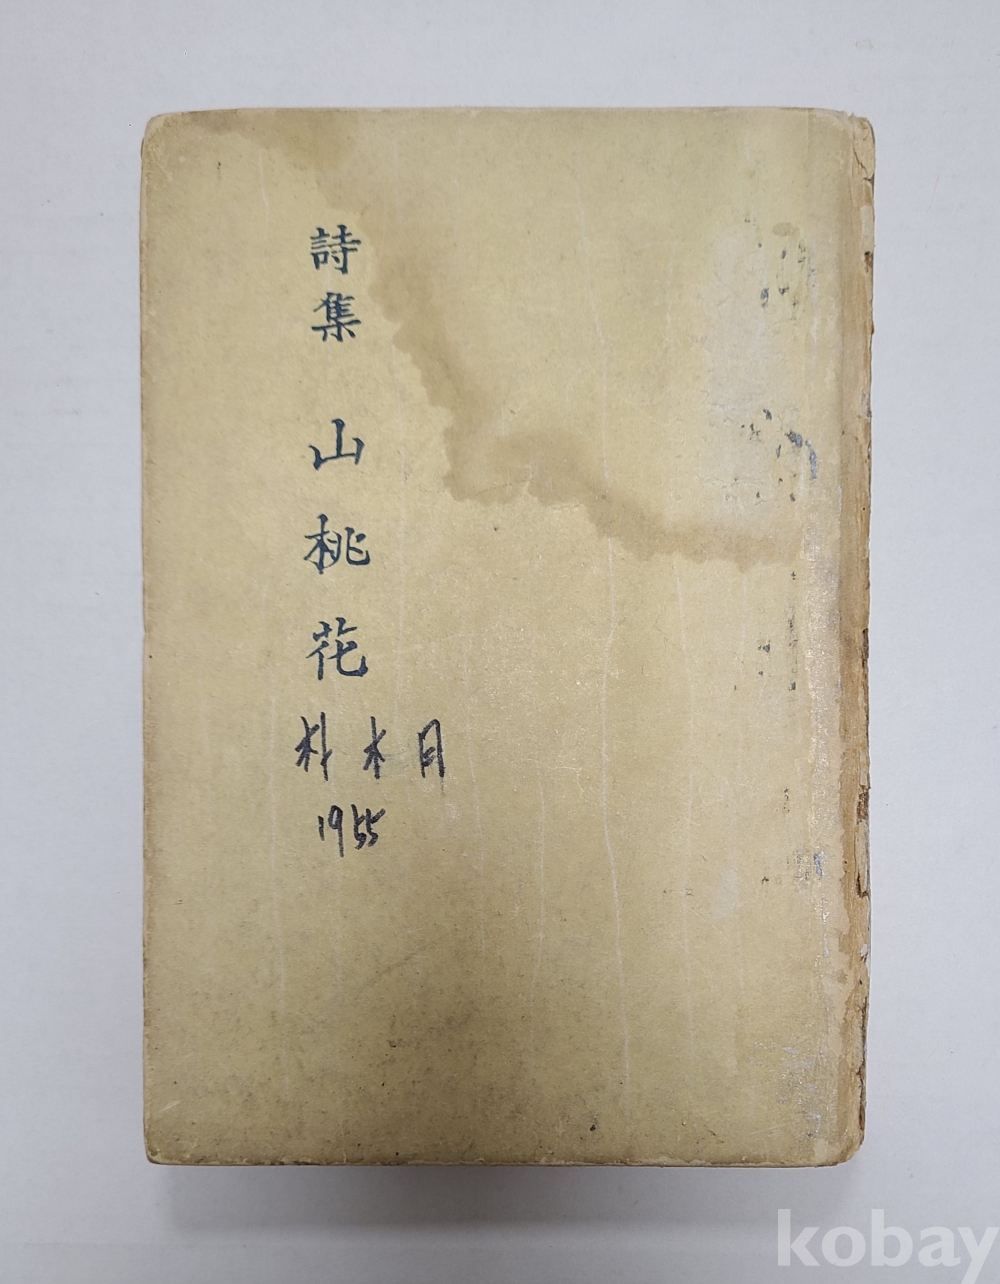 詩集 山桃花
朴木月
1955
kobay